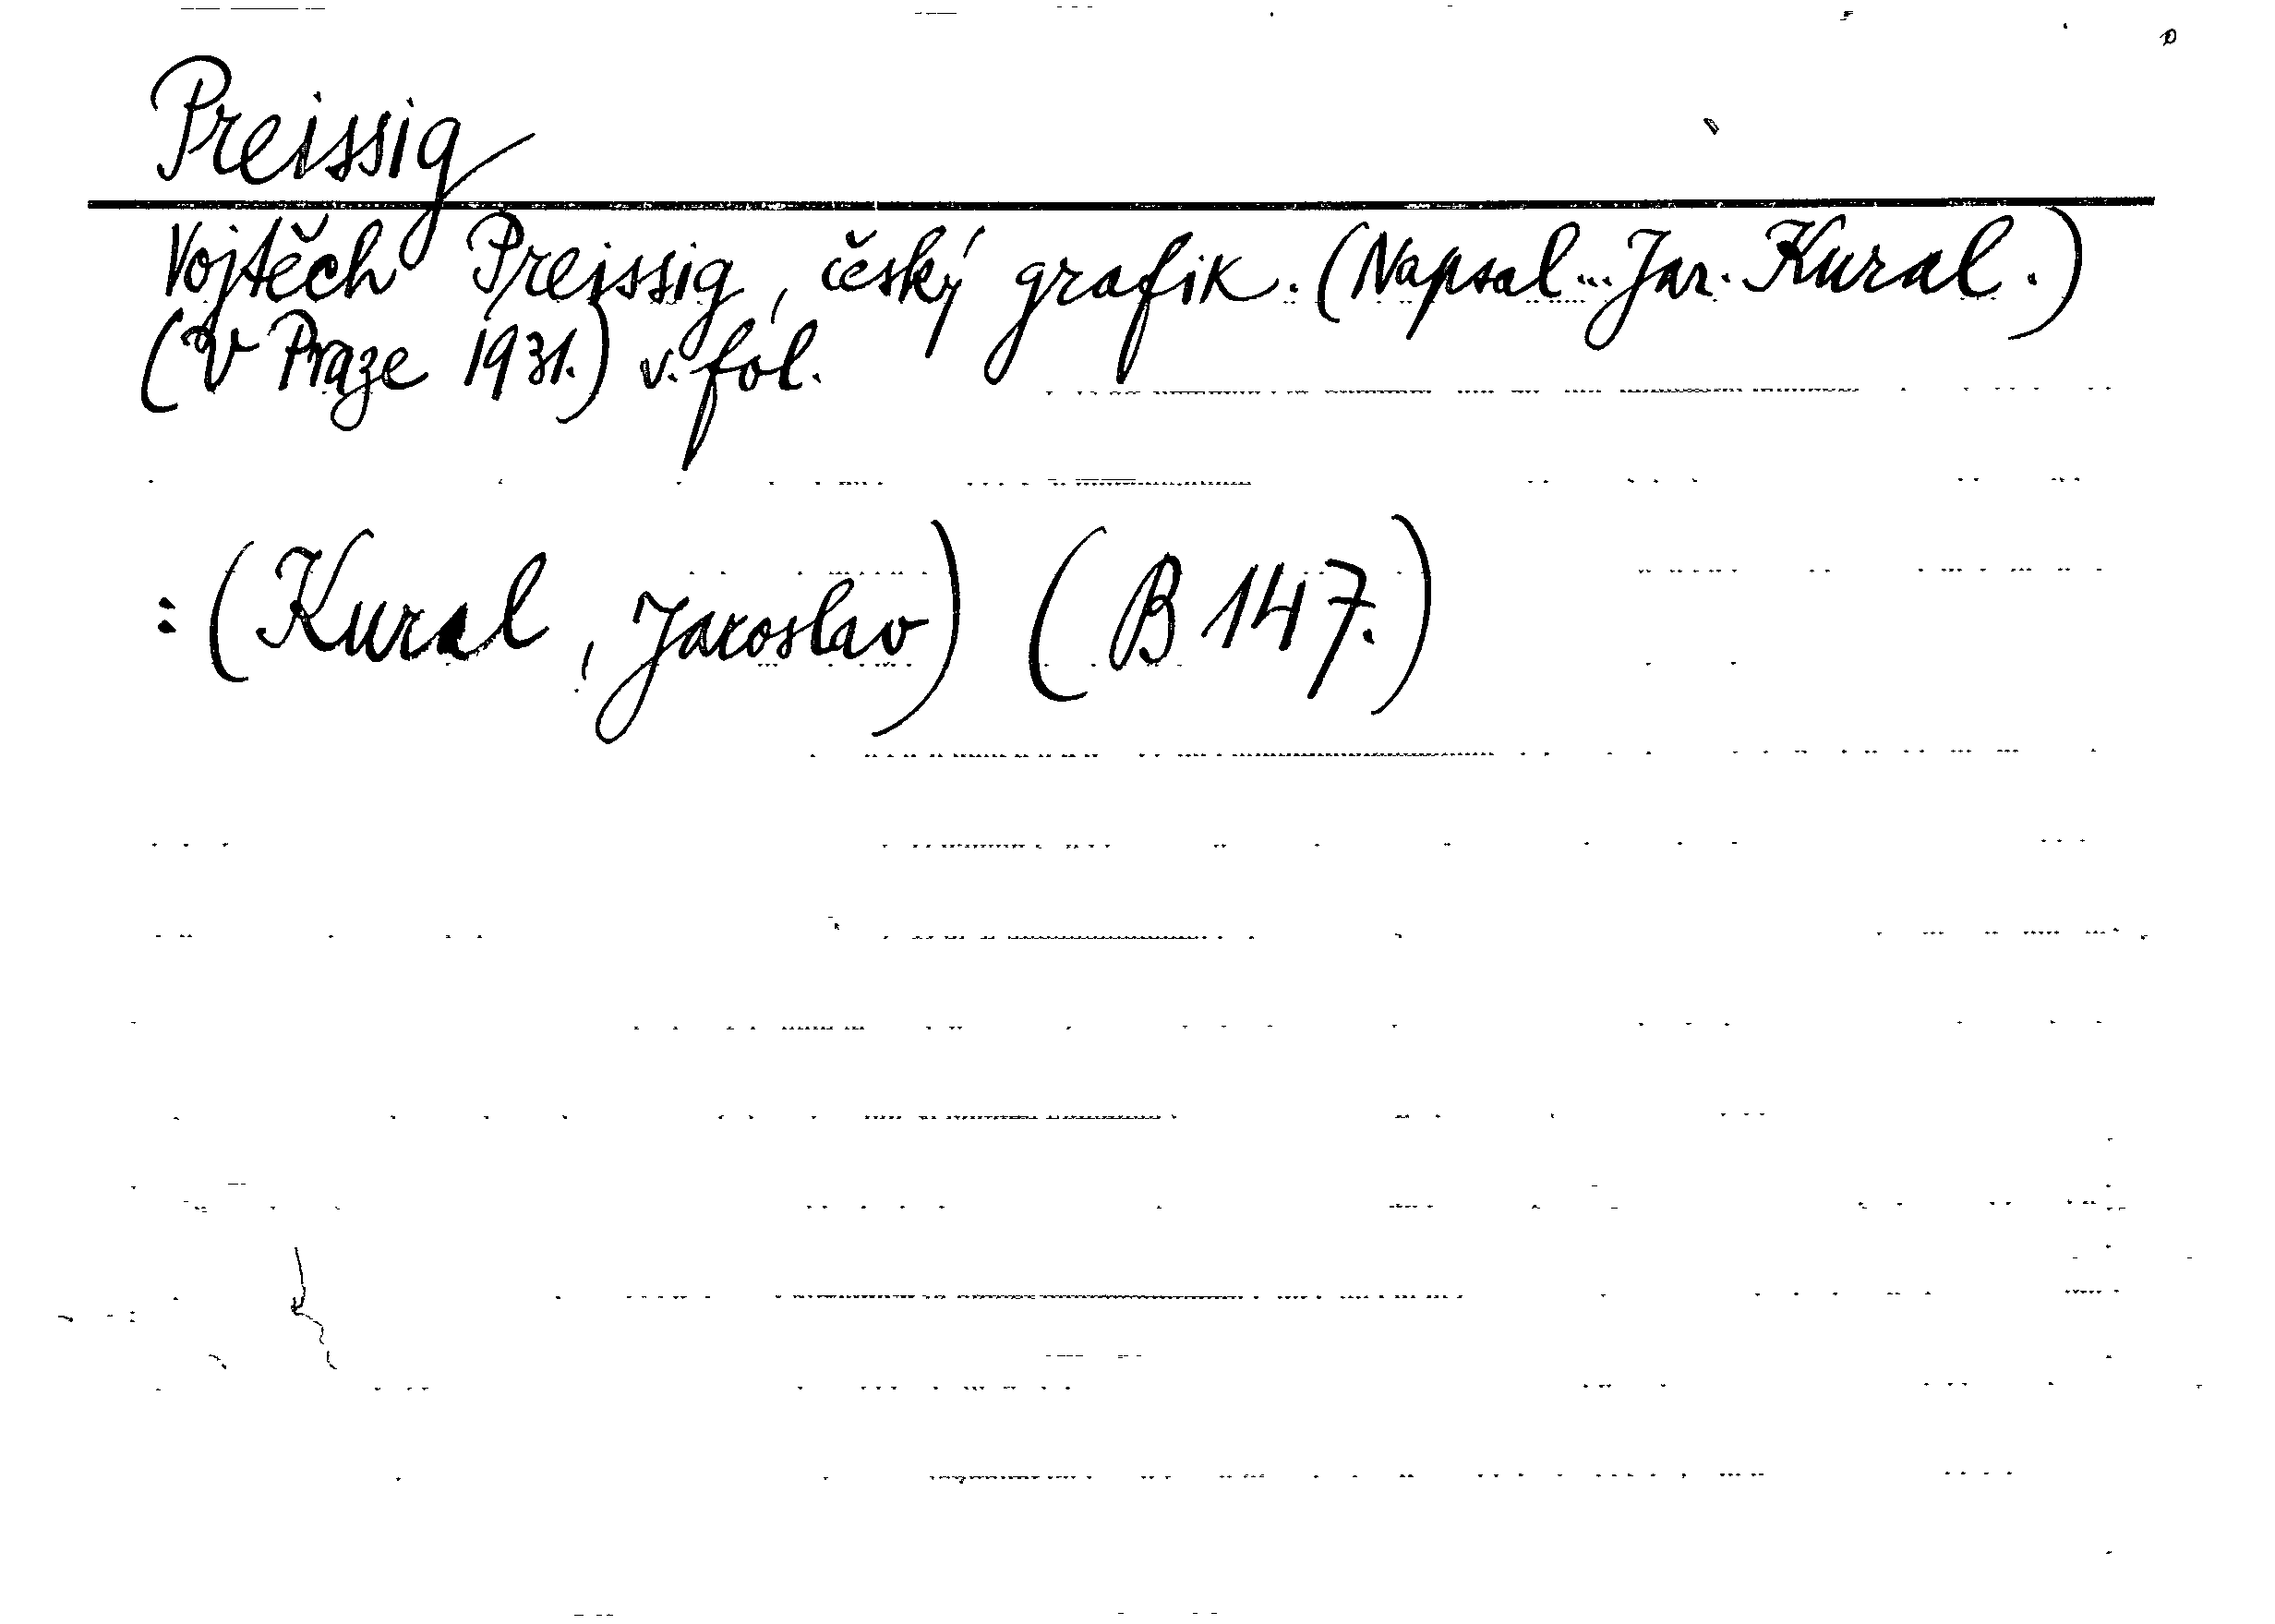 Preissig
Vojtěch Preissig, český grafik. (Napsal... Jar. Kural.)
(V Praze 1931.) v. fol.
: (Kural, Jaroslav) (B 147.)